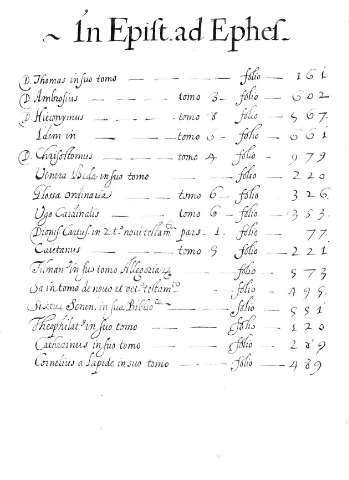 ~ In Epist. ad Ephes.
D. Thomas in suo tomo — folio — 161
D. Ambrosius — tomo 3 — folio — 602
D. Hieronymus — tomo 8 — folio — 567
Idem in — tomo 6 — folio — 661
D. Chrisostomus — tomo 4 — folio — 979
Venera Beda in suo tomo — folio — 220
Glossa ordinaria — tomo 6 — folio — 326
Ugo Cardinalis — tomo 6 — folio — 353
Dionis Cartus in 2 t. novi testam. pars. 1. folio — 77
Caietanus — tomo 5 — folio — 221
in suo tomo — folio — 573
Sa in tomo de novo et vet. testam. — folio — 495
Sixtus Senen. in sua Biblio — folio — 551
Theophilat. in suo tomo — folio — 120
Catherinus in suo tomo — folio — 289
Cornelius a Lapide in suo tomo — folio — 489